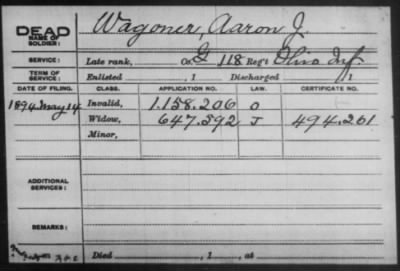 DEAD Wagoner, Aaron J.
NAME OF
SOLDIER:
SERVICE: Late rank, Co. G 118 Reg't Ohio Inf.
TERM OF
SERVICE: Enlisted , 1 Discharged , 1
DATE OF FILING. CLASS. APPLICATION NO. LAW. CERTIFICATE NO.
1894 May 14 Invalid, 1.158.206 O
Widow, 647.592 J 494.261
Minor,
ADDITIONAL
SERVICES:
REMARKS:
Died , 1 , at